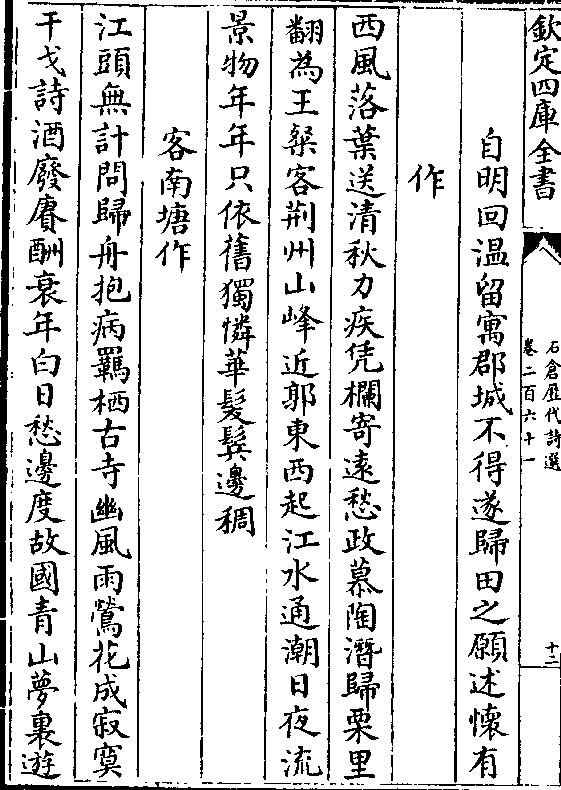 欽定四庫全書
石倉歷代詩選
卷二百六十一
十二
自明回温留寓郡城不得遂歸田之願述懷有
作
西風落葉送清秋力疾凭欄寄遠愁政慕陶潛歸栗里
翻為王粲客荆州山峰近郭東西起江水通潮日夜流
景物年年只依舊獨憐華髮鬂邊稠
客南塘作
江頭無計問歸舟抱病羈栖古寺幽風雨鶯花成寂寞
干戈詩酒廢賡酬衰年白日愁邊度故國青山夢裏遊